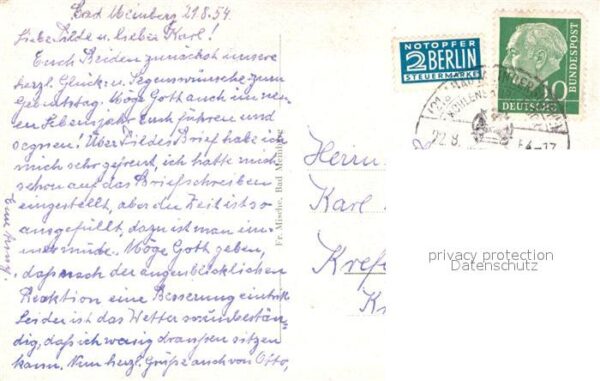 Bad Meinberg 21.8.54.
Liebe Tilde u. lieber Karl!
Euch Beiden zunächst unsere
herzl. Glück- u. Segenswünsche zum
Geburtstag. Möge Gott auch im neu-
en Lebensjahr Euch führen und
segnen! Über Tildes Brief habe ich
mich sehr gefreut, ich hatte mich
schon auf das Briefschreiben
eingestellt, aber die Zeit ist so
ausgefüllt, dazu ist man im-
mer müde. Möge Gott geben,
daß nach der augenblicklichen
Reaktion eine Besserung eintritt.
Leider ist das Wetter so unbestän-
dig, daß ich wenig draußen sitzen
kann. Nun herzl. Grüße auch von Otto,
Eure Anny.
Fr. Mische, Bad Meinberg
NOTOPFER
2 BERLIN
STEUERMARKE
10
DEUTSCHE
BUNDESPOST
22.8.
54-17
Herrn
Karl
Krefe
Kr
privacy protection
Datenschutz